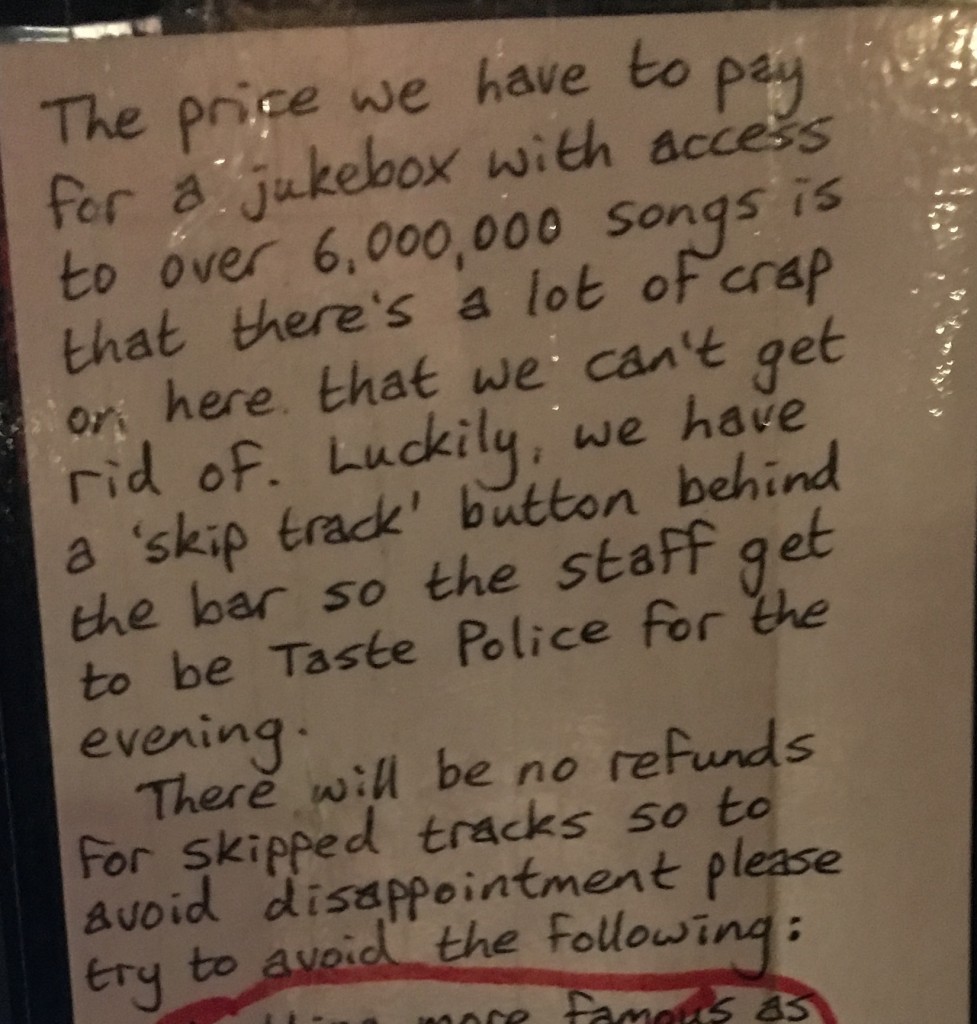 The price we have to pay
for a jukebox with access
to over 6,000,000 songs is
that there's a lot of crap
on here that we can't get
rid of. Luckily, we have
a 'skip track' button behind
the bar so the staff get
to be Taste Police for the
evening.
There will be no refunds
for skipped tracks so to
avoid disappointment please
try to avoid the following:
more famous as